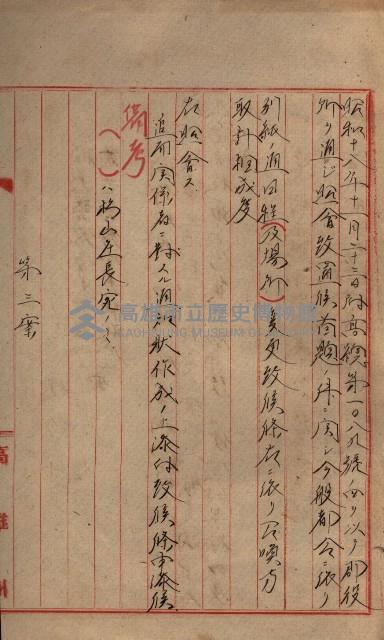 昭和十八年十一月二十三日附高總第一〇八九號ヲ以テ郡役
所ヲ通ジ照會致置候首題ノ件ニ関シ今般都合ニ依リ
別紙ノ通日程(及場所)変更致候條右ニ依リ
取計相成度
右照會ス
追而関係者ニ對スル通知狀作成ノ上添付致候條申添候
備考
(一)ハ橋山庄長宛
第三案
高雄州
高雄市立歷史博物館
KAOHSIUNG MUSEUM OF HISTORY